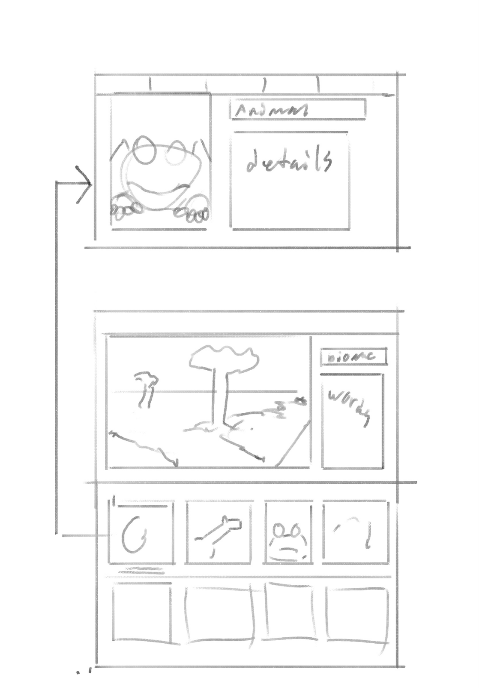 Animal
details
biome
words